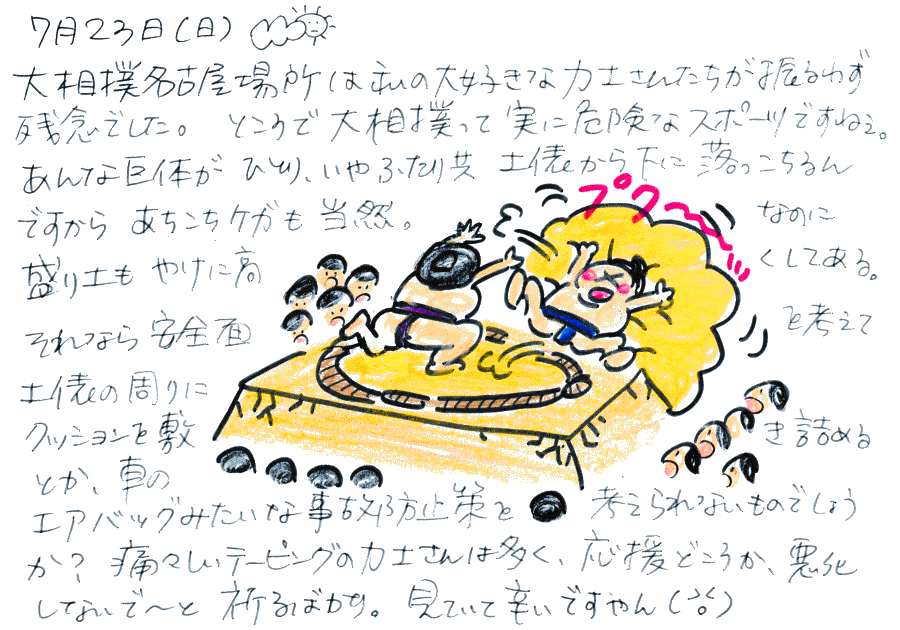 7月23日(日)
大相撲名古屋場所は私の大好きな力士さんたちが振るわず
残念でした。ところで大相撲って実に危険なスポーツですねぇ。
あんな巨体がひとり、いやふたり共土俵から下に落っこちるん
ですからあちこちケガも当然。なのに
プクーッ
盛り土もやけに高くしてある。
それなら安全面を考えて
土俵の周りに
クッションを敷き詰める
とか、車の
エアバッグみたいな事故防止策を考えられないものでしょう
か?痛々しいテーピングの力士さんは多く、応援どころか、悪化
しないで〜と祈るばかり。見ていて辛いですやん(>o<)